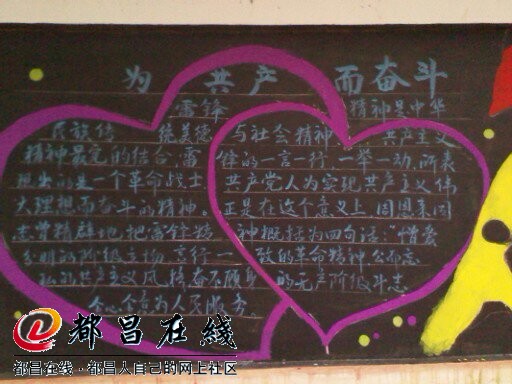 为共产 而奋斗
雷锋 精神是中华
民族传 统美德 与社会精神 共产主义
精神最完的结合,雷 锋的一言一行,一举一动,所表
现出的是一个革命战士 共产党人为实现共产主义伟
大理想而奋斗的精神。正是在这个意义上,周恩来同
志曾精辟地把雷锋精 神概括为四句话:"憎爱
分明的阶级立场,言行一 致的革命精神公而忘
私的共产主义风,格奋不顾身 的无产阶级斗志
全心全意为人民服务
都昌在线
都昌在线·都昌人自己的网上社区